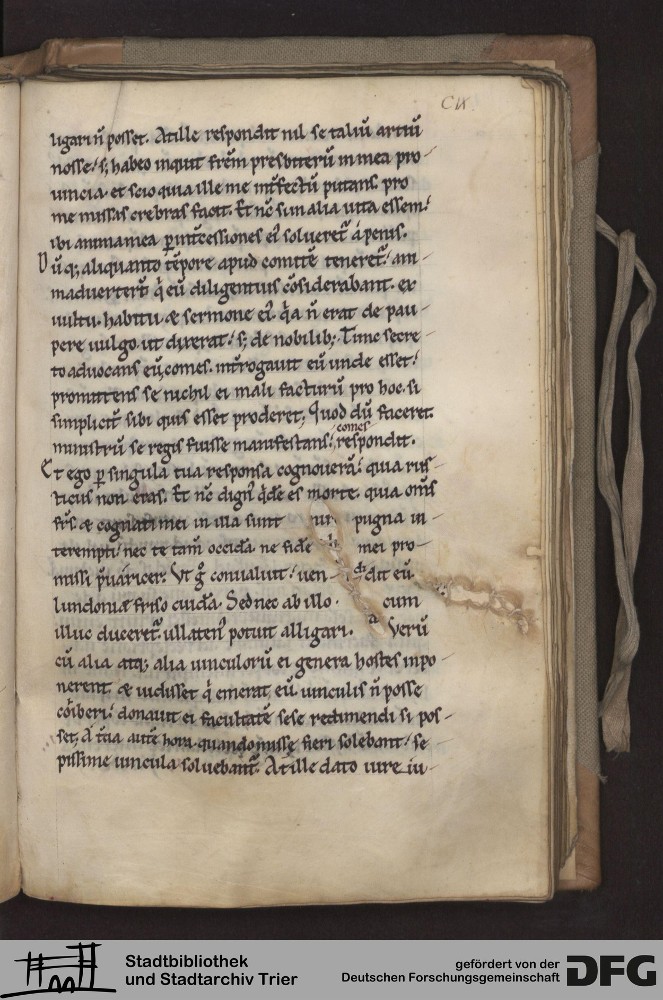 CIX.
ligari n̄ posset. At ille respondit nil se taliū artiū
nosse. s; habeo inquit frēm presbiterū in mea pro-
uincia. et scio quia ille me int̄fectū putans. pro
me missas crebras facit. Et nc̄ si in alia uita essem.
ibi anima mea p̱ int̄cessiones ei᷒ soluereт̄ a penis.
Dū q; aliquanto tēpore apud comitē tenereт̄. an-
maduerterт̄ q̇ eū diligentius cōsiderabant. ex
uultu. habitu & sermone ei᷒. q̇a n̄ erat de pau-
pere uulgo. ut dixerat. s; de nobilib;. Tunc secre-
to aduocans eū comes. int̄rogauit eū unde esset.
promittens se nichil ei mali facturū pro hoc. si
simplicit̄ sibi quis esset proderet; Quod dū faceret
ministrū se regis fuisse manifestans. comes respondit.
Et ego p̱ singula tua responsa cognouerā. quia rus-
ticus non eras. Et nc̄ dign᷒ q̇dē es morte. quia om̄s
frs̄ & cognati mei in illa sunt pugna in-
terempti. nec te tam̄ occidā ne fidē mei pro-
missi p̄uaricer. Ut g̊ conualuit. uendidit eū
lundoniā friso cuidā. Sed nec ab illo. cum
illuc duceret̄ ullaten᷒ potuit alligari. Verū
cū alia atq; alia uinculorū ei genera hostes inpo
nerent & uidisset q̇ emerat eū uinculis n̄ posse
cōiberi. donauit ei facultatē sese redimendi si pos-
set. A t̄tia autē hora quando missę fieri solebant. sę
pissime uincula soluebant̄. At ille dato iure iu-
Stadtbibliothek
und Stadtarchiv Trier
gefördert von der
Deutschen Forschungsgemeinschaft
DFG